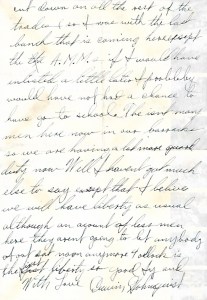 cut down on all the rest of the
trades & so I was with the last
bunch that is coming here except
the A.M.M. – if I would have
enlisted a little later I probably
would have not had a chance to
have go to school. There isnt many
men here now in our barracks
so we are having a lot more guard
duty now. Well I havent got much
else to say except that I believe
we will have liberty as usual
although on account of less men
here they arent going to let anybody
off out sat noon anymore 4 oclock is
the first liberty so good by all
With Love